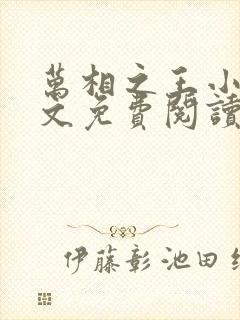 萬相之王小
文免費閱讀
伊藤彰 池田